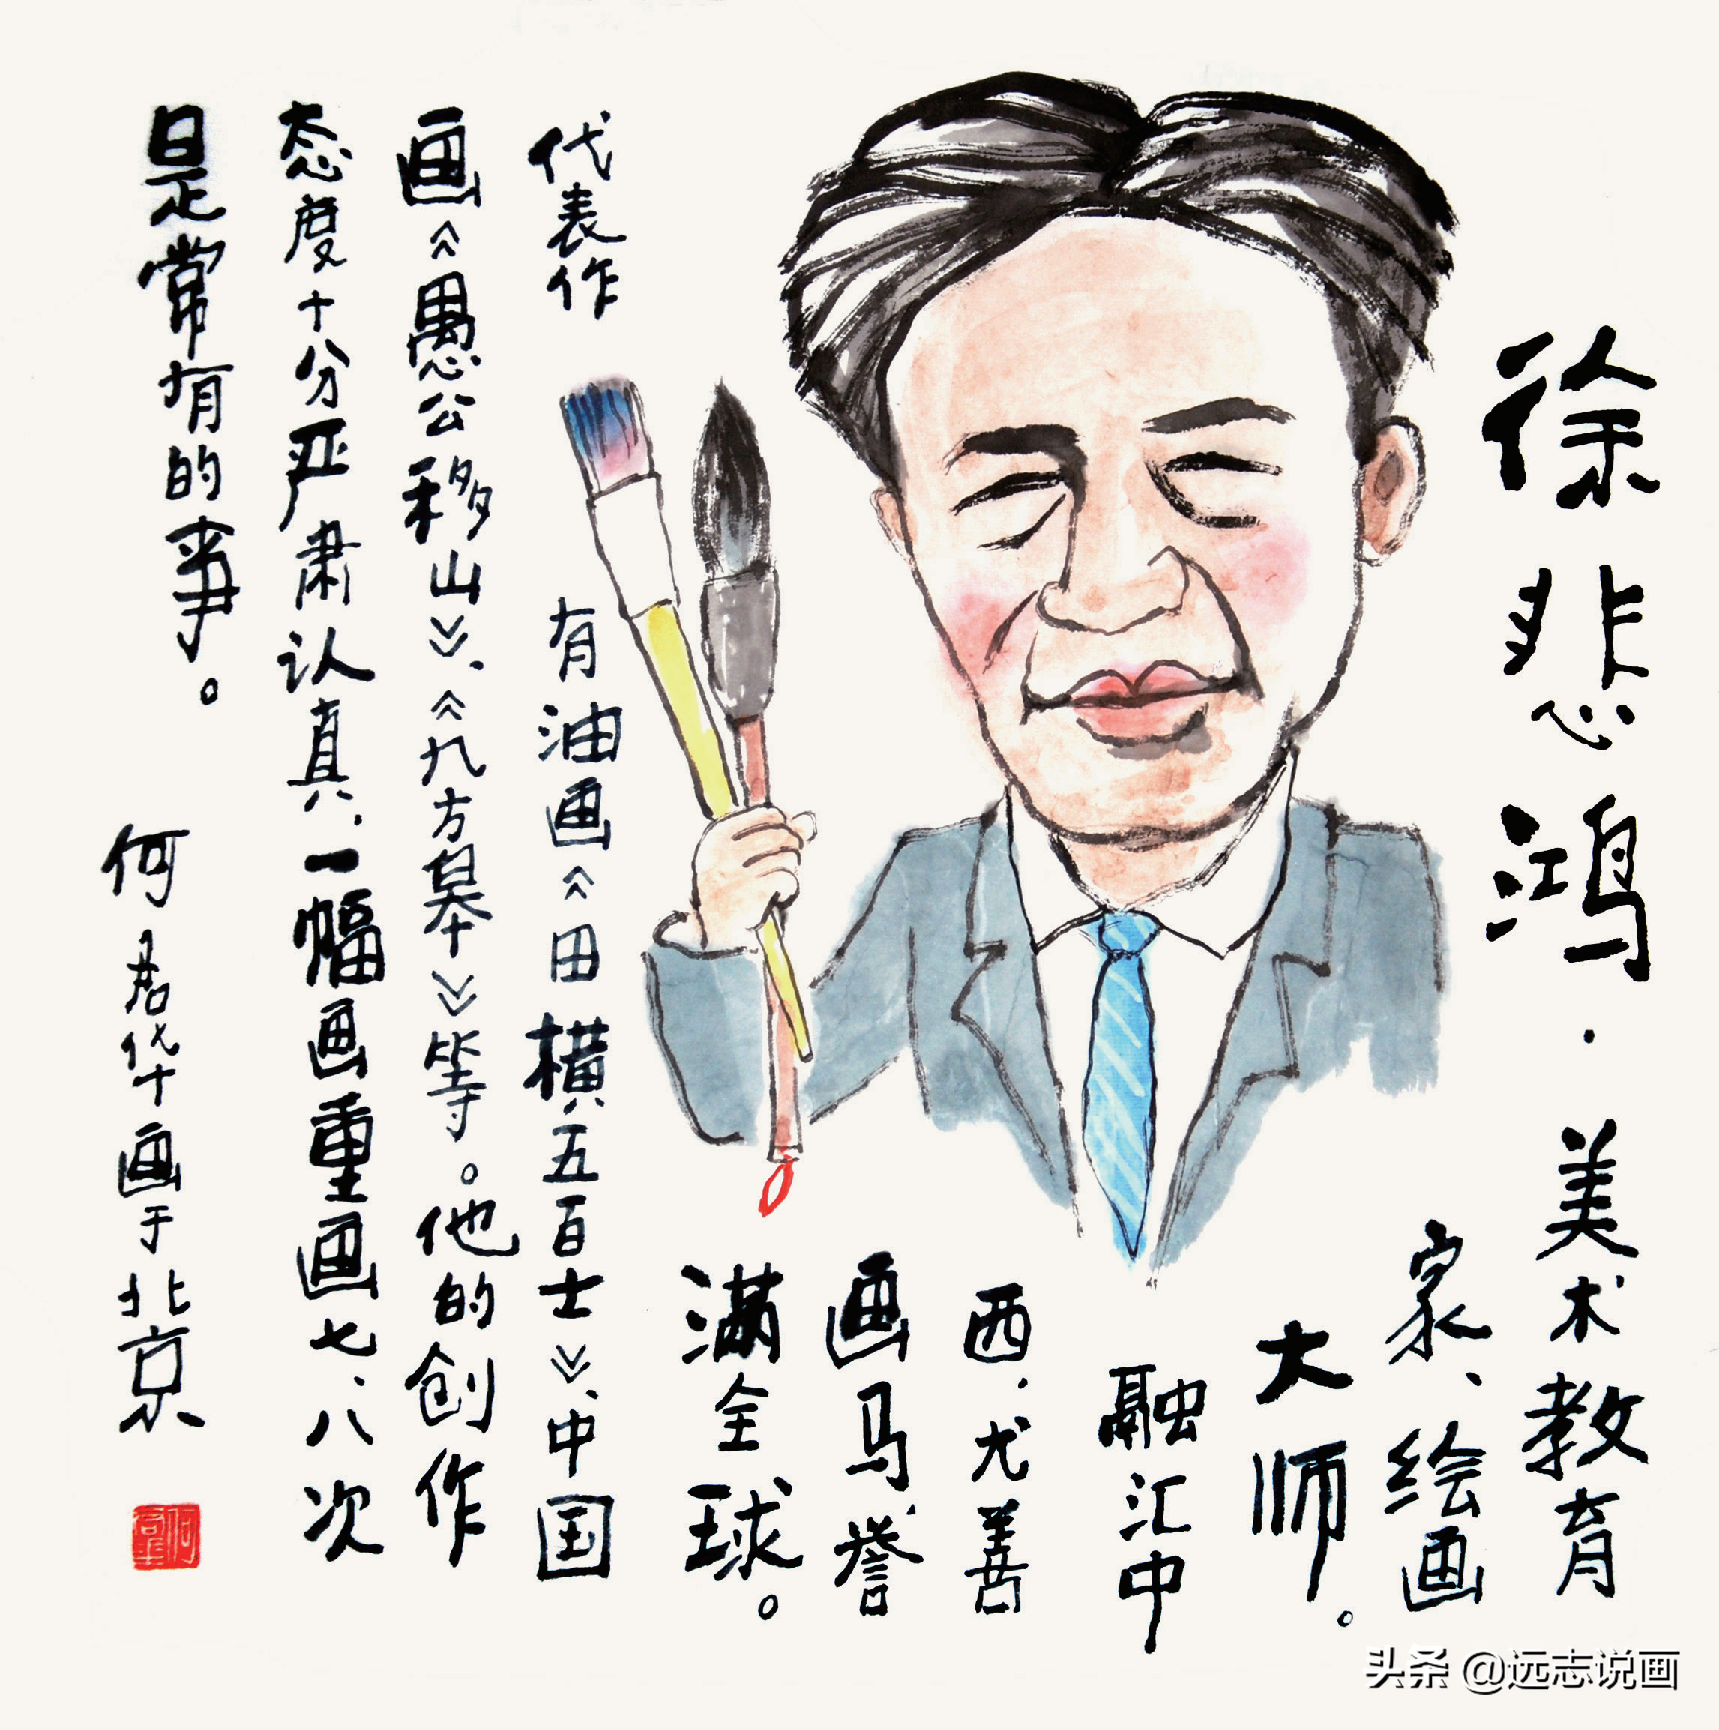 徐悲鸿·美术教育
家、绘画
大师。
融汇中
西.尤善
画马誉
满全球。
代表作有油画《田横五百士》、中国
画《愚公移山》、《九方皋》等。他的创作
态度十分严肃认真、一幅画重画七、八次
是常有的事。
何君华画于北京
头条 @远志说画